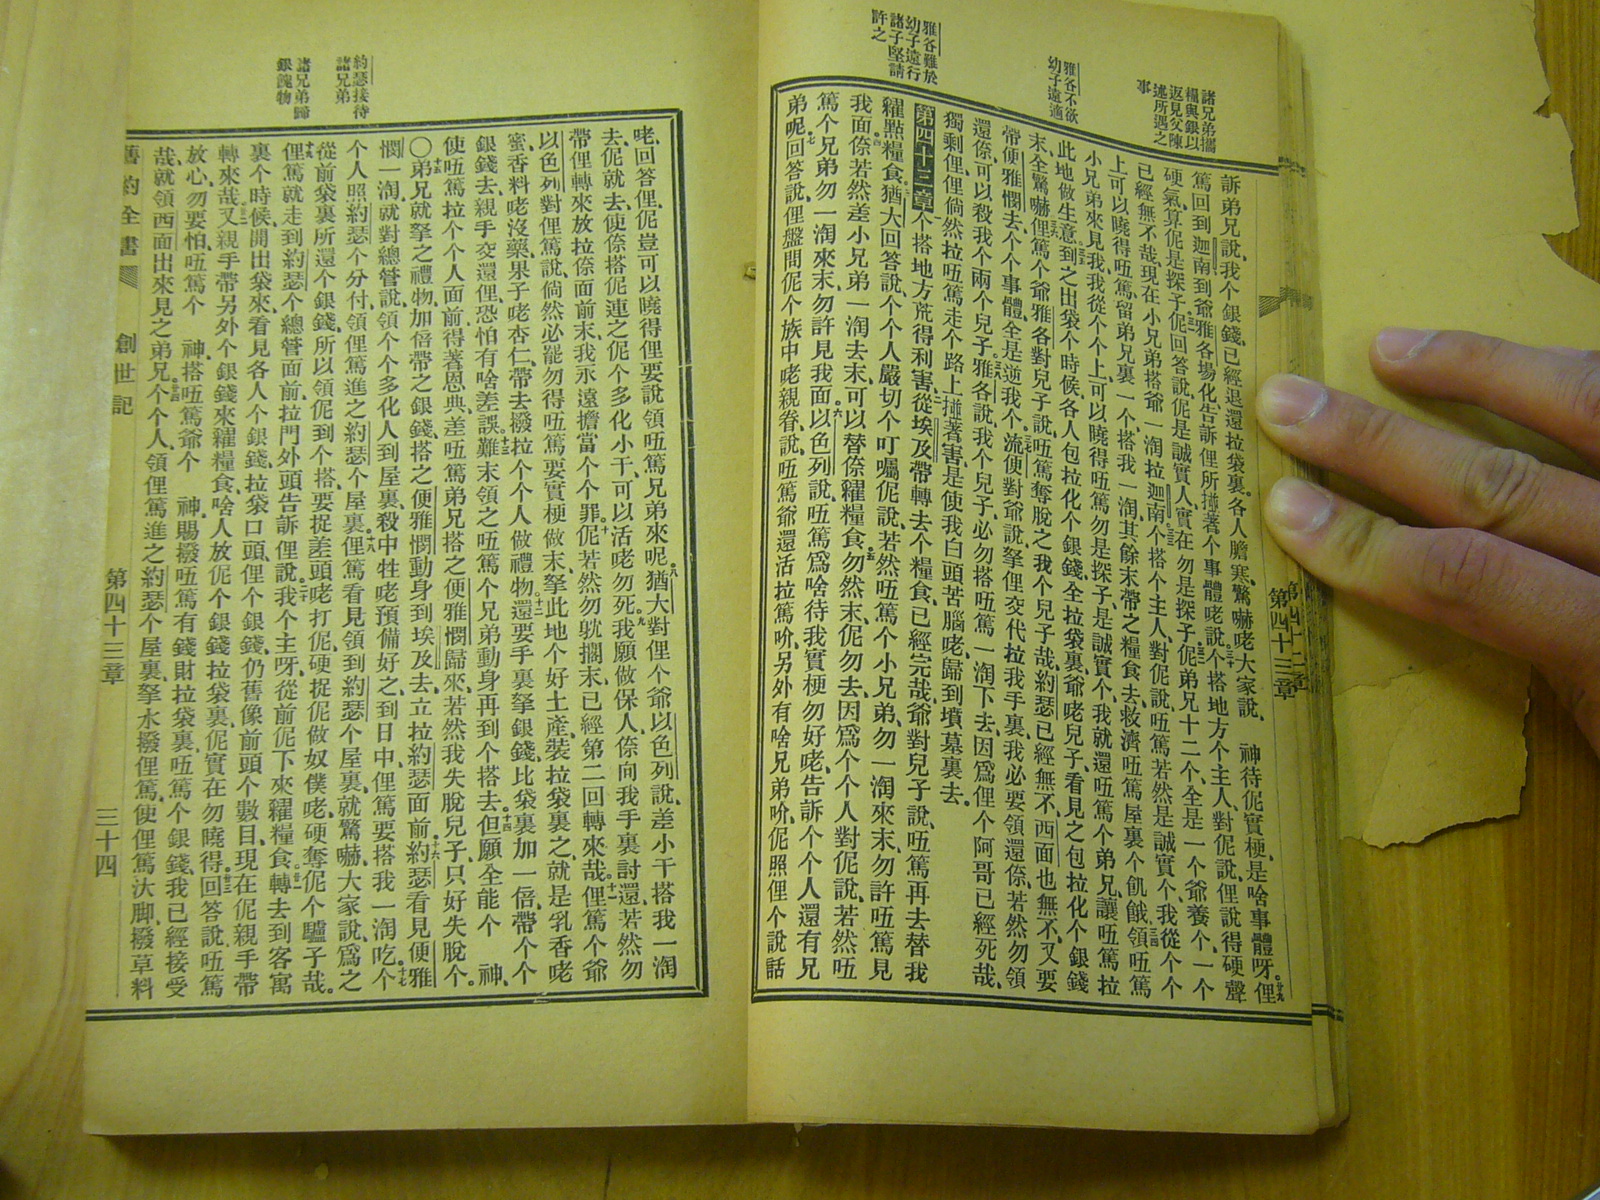 諸兄弟攜
糧與銀以
返見父陳
述所遇之
事
雅各不欲
幼子遠適
雅各難於
幼子遠行
諸子堅請
許之
訴弟兄說、我个銀錢、已經退還拉袋裏、各人膽寒、驚嚇咾大家說、神待伲實梗、是啥事體呀、俚
篤回到迦南、到爺雅各塲化、告訴俚所撞著个事體咾說、个搭地方个主人、對伲說、俚說得硬聲
硬氣、算伲是探子、伲回答說、伲是誠實人、實在勿是探子、伲弟兄十二个、全是一个爺養个、一个
已經無不哉、現在小兄弟搭爺一淘拉迦南、个搭个主人、對伲說、吪篤若然是誠實个、我從个个
上可以曉得、吪篤留弟兄裏一个搭我一淘、其餘末帶之糧食、去救濟吪篤屋裏个飢餓、領吪篤
小兄弟來見我、我從个个上、可以曉得吪篤勿是探子、是誠實个、我就還吪篤个弟兄、讓吪篤拉
此地做生意、到之出袋个時候、各人包拉化个銀錢、全拉袋裏、爺咾兒子、看見之包拉化个銀錢
末、全驚嚇、俚篤个爺雅各對兒子說、吪篤奪脫之我个兒子哉、約瑟已經無不、西面也無不、又要
帶便雅憫去、个个事體全是逆我个、流便對爺說、拏俚交代拉我手裏、我必要領還倷、若然勿領
還倷、可以殺我个兩个兒子、雅各說、我个兒子、必勿搭吪篤一淘下去、因爲俚个阿哥已經死哉、
獨剩俚、俚倘然拉吪篤走个路上撞著害、是使我白頭苦腦咾歸到墳墓裏去、
第四十三章个搭地方荒得利害、從埃及帶轉去个糧食、已經完哉、爺對兒子說、吪篤再去替我
糴點糧食、猶大回答說、个个人嚴切个叮囑伲說、若然吪篤个小兄弟、勿一淘來末、勿許吪篤見
我面、倷若然差小兄弟一淘去末、可以替倷糴糧食、勿然末、伲勿去、因爲个个人對伲說、若然吪
篤个兄弟勿一淘來末、勿許見我面、以色列說、吪篤爲啥待我實梗勿好咾、告訴个个人還有兄
弟呢、回答說、俚盤問伲个族中咾親眷、說、吪篤爺還活拉篤吤、另外有啥兄弟吤、伲照俚个說話
第四十三章
約瑟接待
諸兄弟
諸兄弟歸
銀餽物
咾回答俚、伲豈可以曉得俚要說領吪篤兄弟來呢、猶大對俚个爺以色列說、差小干搭我一淘
去、伲就去、使倷搭伲連之伲个多化小干、可以活咾勿死、我願做保人、倷向我手裏討還、若然勿
帶俚轉來、放拉倷面前末、我永遠擔當个个罪、伲若然勿躭擱末、已經第二回轉來哉、俚篤个爺
以色列對俚篤說、倘然必罷勿得、吪篤要實梗做末、拏此地个好土產、裝拉袋裏之、就是乳香咾
蜜、香料咾沒藥、果子咾杏仁、帶去撥拉个个人做禮物、還要手裏拏銀錢、比袋裏加一倍、帶个个
銀錢去、親手交還俚、恐怕有啥差誤難末、領之吪篤个兄弟、動身再到个搭去、但願全能个神、
使吪篤拉个个人面前得著恩典、差吪篤弟兄搭之便雅憫歸來、若然我失脫兒子、只好失脫个、
〇弟兄就拏之禮物、加倍帶之銀錢、搭之便雅憫、動身到埃及去、立拉約瑟面前、約瑟看見便雅
憫一淘、就對總管說、領个个多化人到屋裏、殺中牲咾預備好之、到日中俚篤要搭我一淘吃、个
个人照約瑟个分付、領俚篤進之約瑟个屋裏、俚篤看見領到約瑟个屋裏、就驚嚇、大家說、爲之
從前袋裏所還个銀錢、所以領伲到个搭、要捉差頭咾打伲、硬捉伲做奴僕咾、硬奪伲个驢子哉、
俚篤就走到約瑟个總管面前、拉門外頭告訴俚說、我个主呀、從前伲下來糴糧食、轉去到客寓
裏个時候、開出袋來、看見各人个銀錢、拉袋口頭、俚个銀錢、仍舊像前頭个數目、現在伲親手帶
轉來哉、又親手帶另外个銀錢來糴糧食、啥人放伲个銀錢拉袋裏、伲實在勿曉得、回答說、吪篤
放心、勿要怕、吪篤个　神、搭吪篤爺个　神、賜撥吪篤有錢財拉袋裏、吪篤个銀錢、我已經接受
哉、就領西面出來見之弟兄、个个人領俚篤進之約瑟个屋裏、拏水撥俚篤、使俚篤汏脚、撥草料
舊約全書　創世記　第四十三章　三十四